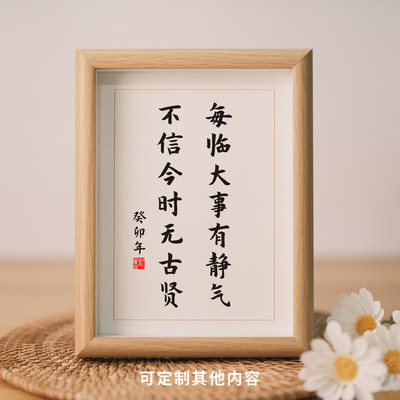 每临大事有静气
不信今时无古贤
癸卯年
可定制其他内容